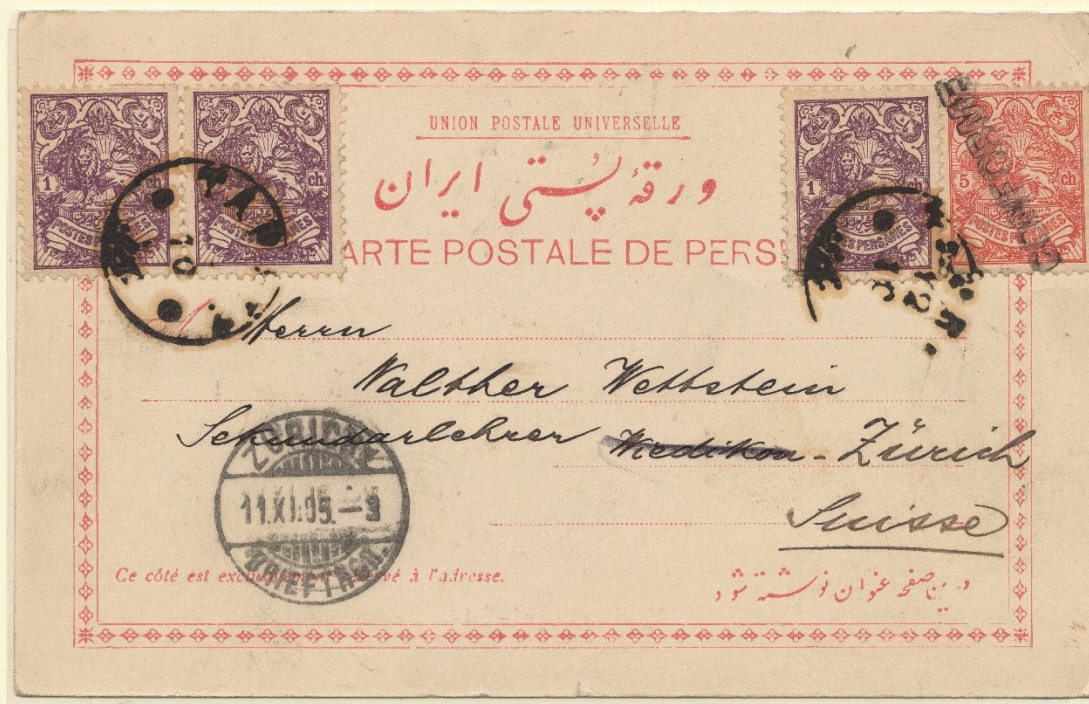 UNION POSTALE UNIVERSELLE
ورقهٔ پستی ایران
CARTE POSTALE DE PERSE
1 ch
POSTES PERSANES
1 ch
POSTES PERSANES
1 ch
POSTES PERSANES
5 ch
POSTES PERSANES
Herrn
Walther Wettstein
Sekundarlehrer Wiedikon - Zürich
Suisse
ZÜRICH
11.XI.05.-9
BRIEFTRÄG.
Ce côté est exclusivement réservé à l'adresse.
در این صفحه عنوان نوشته شود